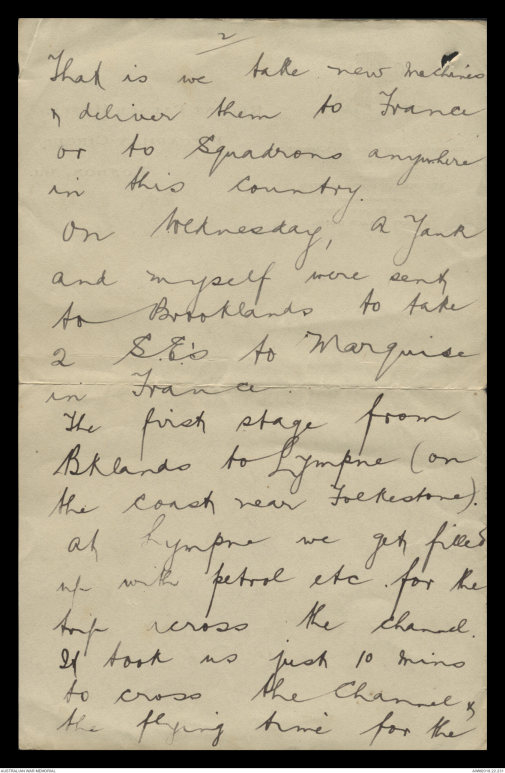 2
That is we take new machines
& deliver them to France
or to Squadrons anywhere
in this country.
On Wednesday, a Yank
and myself were sent
to Brooklands to take
2 S.E's to Marquise
in France.
The first stage from
Bklands to Lympne (on
the coast near Folkestone).
At Lympne we get filled
up with petrol etc. for the
trip across the channel.
It took us just 10 mins
to cross the Channel &
the flying time for the
AUSTRALIAN WAR MEMORIAL